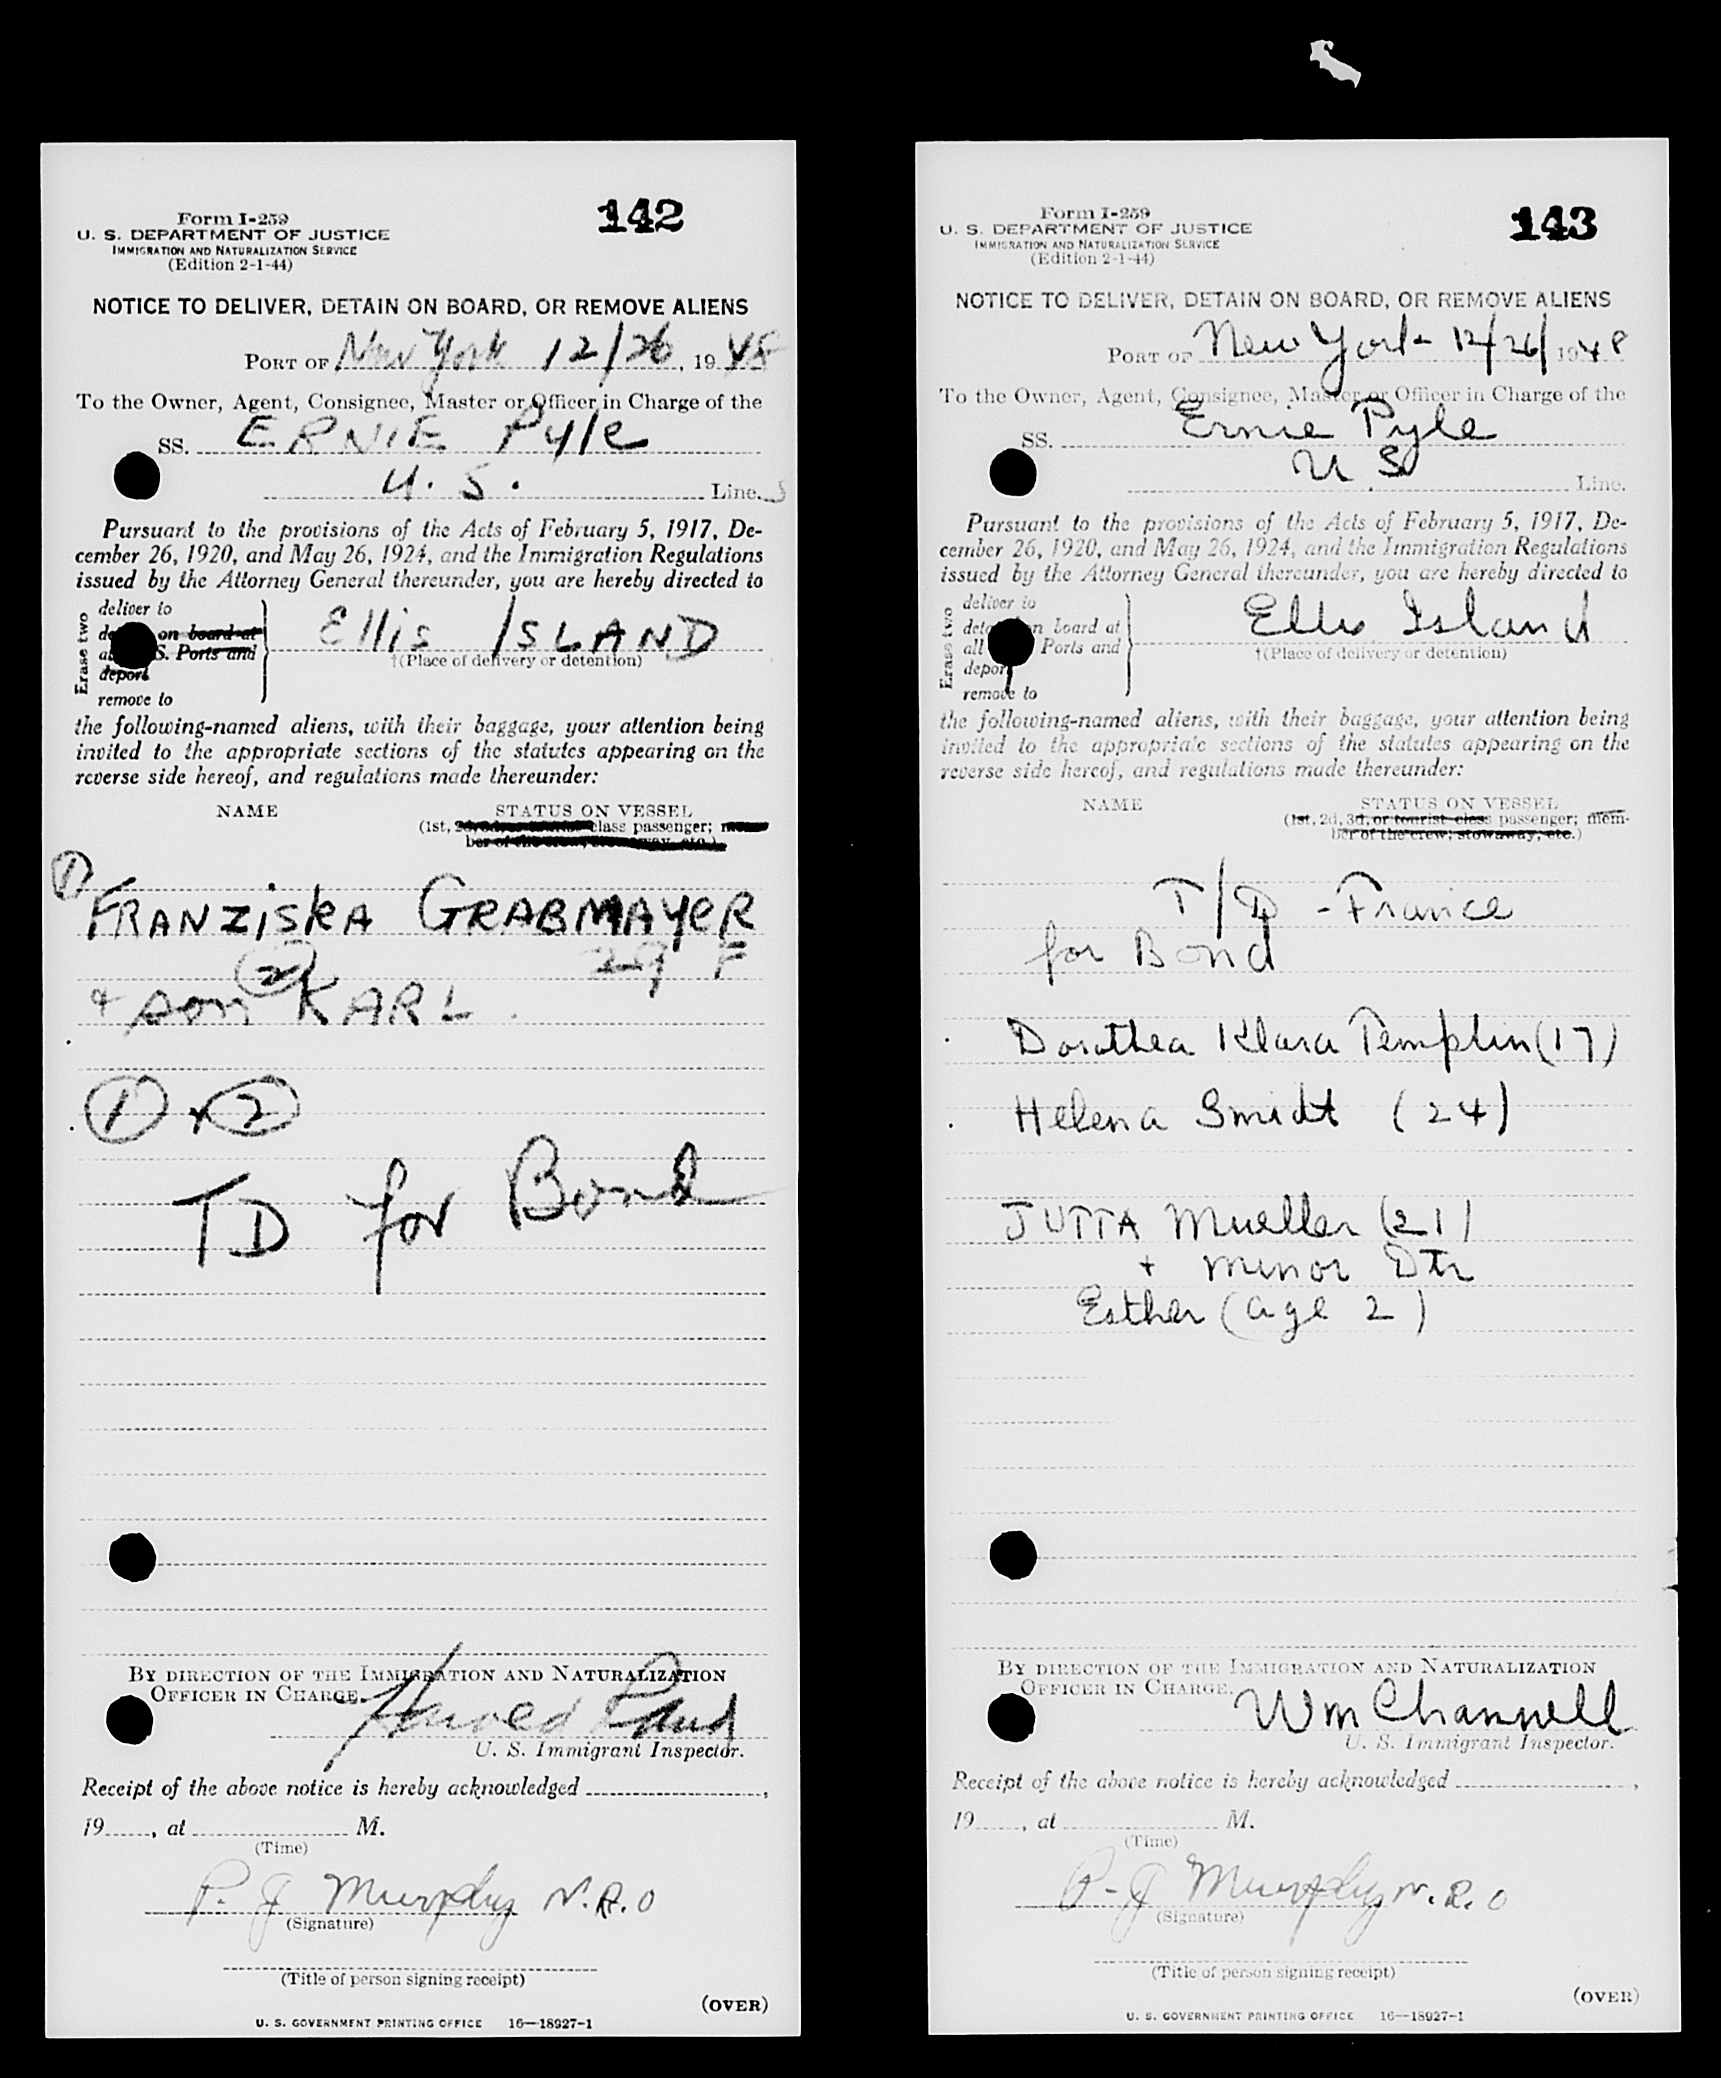 142
Form I-259
U. S. DEPARTMENT OF JUSTICE
IMMIGRATION AND NATURALIZATION SERVICE
(Edition 2-1-44)
NOTICE TO DELIVER, DETAIN ON BOARD, OR REMOVE ALIENS
PORT OF New York 12/26, 1948
To the Owner, Agent, Consignee, Master or Officer in Charge of the
SS. ERNIE Pyle
U. S. Line.
Pursuant to the provisions of the Acts of February 5, 1917, De-
cember 26, 1920, and May 26, 1924, and the Immigration Regulations
issued by the Attorney General thereunder, you are hereby directed to
Erase two
deliver to
on board at
S. Ports and
deport
remove to
Ellis ISLAND
†(Place of delivery or detention)
the following-named aliens, with their baggage, your attention being
invited to the appropriate sections of the statutes appearing on the
reverse side hereof, and regulations made thereunder:
NAME STATUS ON VESSEL
(1st, class passenger;
ber of the crew; stowaway, etc.)
(1)
FRANZISKA GRABMAYER
29 F
(2)
+ son KARL
(1) + (2)
TD for Bond
BY DIRECTION OF THE IMMIGRATION AND NATURALIZATION
OFFICER IN CHARGE.
Harold
U. S. Immigrant Inspector.
Receipt of the above notice is hereby acknowledged ,
19 , at M.
(Time)
P. J Murphy N.R.O
(Signature)
(Title of person signing receipt)
(OVER)
U. S. GOVERNMENT PRINTING OFFICE 16—18927-1
143
Form I-259
U. S. DEPARTMENT OF JUSTICE
IMMIGRATION AND NATURALIZATION SERVICE
(Edition 2-1-44)
NOTICE TO DELIVER, DETAIN ON BOARD, OR REMOVE ALIENS
PORT OF New York 12/26/ 1948
To the Owner, Agent, Consignee, Master or Officer in Charge of the
SS. Ernie Pyle
U S Line.
Pursuant to the provisions of the Acts of February 5, 1917, De-
cember 26, 1920, and May 26, 1924, and the Immigration Regulations
issued by the Attorney General thereunder, you are hereby directed to
Erase two
deliver to
board at
all Ports and
deport
remove to
Ellis Island
†(Place of delivery or detention)
the following-named aliens, with their baggage, your attention being
invited to the appropriate sections of the statutes appearing on the
reverse side hereof, and regulations made thereunder:
NAME STATUS ON VESSEL
(1st, 2d, 3d, or tourist class passenger; mem-
ber of the crew; stowaway, etc.)
T/D - France
for Bond
Dorothea Klara Templin (17)
Helena Smidt (24)
JUTTA Mueller (21)
+ minor Dtr
Esther (age 2)
BY DIRECTION OF THE IMMIGRATION AND NATURALIZATION
OFFICER IN CHARGE.
Wm Channell
U. S. Immigrant Inspector.
Receipt of the above notice is hereby acknowledged ,
19 , at M.
(Time)
P. J Murphy N. R. O
(Signature)
(Title of person signing receipt)
(OVER)
U. S. GOVERNMENT PRINTING OFFICE 16—18927-1